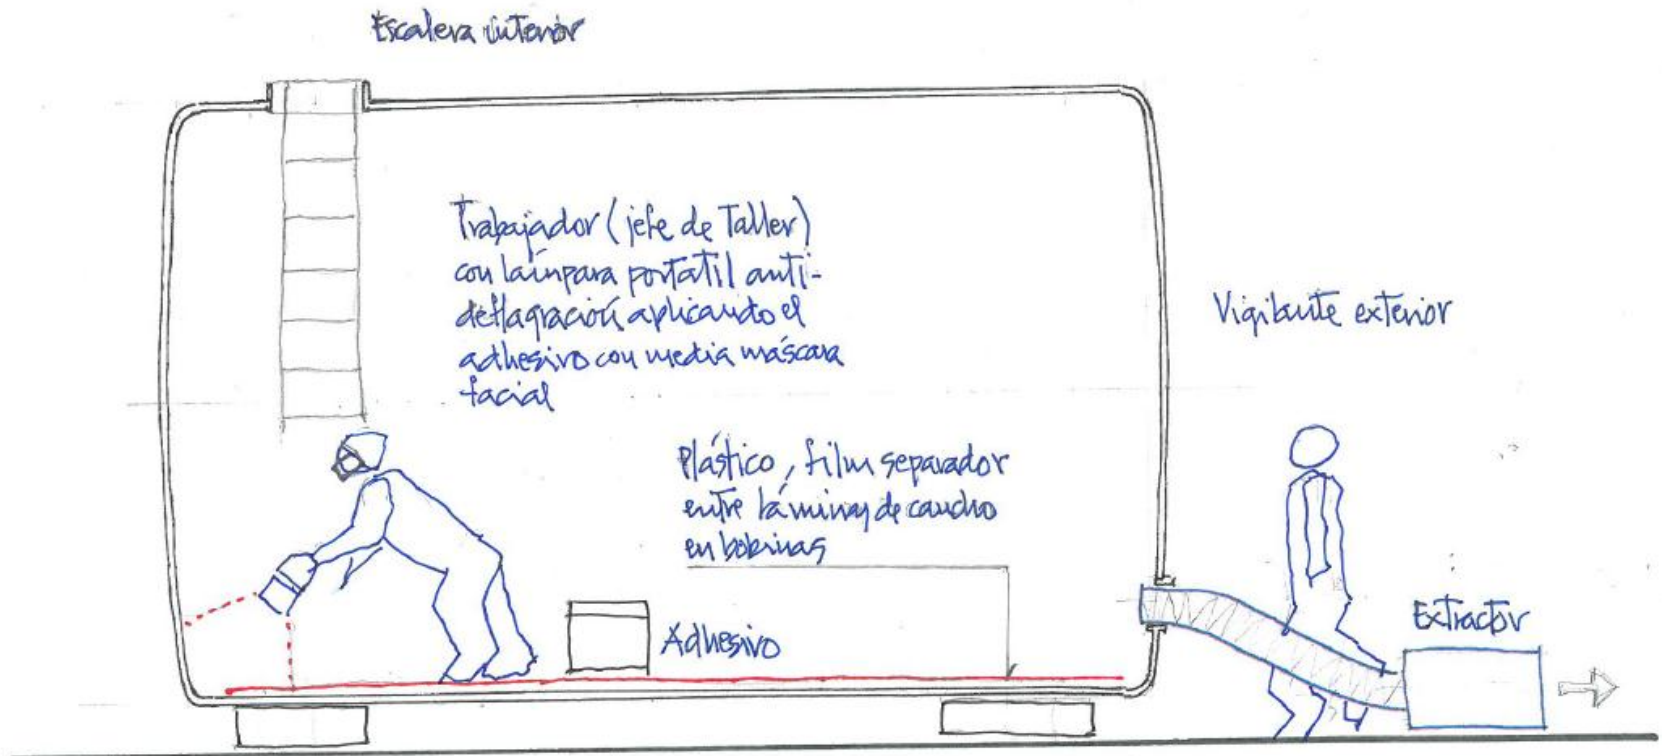 Escalera interior
Trabajador (jefe de Taller)
con lámpara portátil anti-
deflagración aplicando el
adhesivo con media máscara
facial
Vigilante exterior
Plástico, film separador
entre láminas de caucho
en bobinas
Extractor
Adhesivo